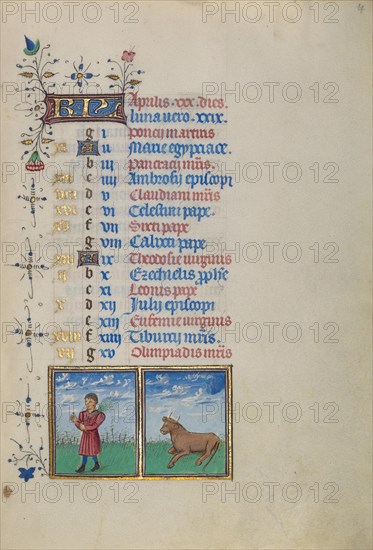 KL Aprilis .xxx. dies.
luna vero .xxix.
g i Poncii martiris
xi A ii Marie egypciace
b iii Pancracii mris
xix c iiii Ambrosii episcopi
viii d v Claudiani mris
xvi e vi Celestini pape
v f vii Sixti pape
g viii Calixti pape
xiii A ix Theodosie virginis
ii b x Ezechielis prophe
c xi Leonis pape
x d xii Julii episcopi
e xiii Eufemie virginis
xviii f xiiii Tiburcii mris
vii g xv Olimpiadis mris
PHOTO 12